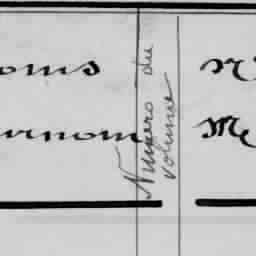 oms
urnom
Numéro du
volume